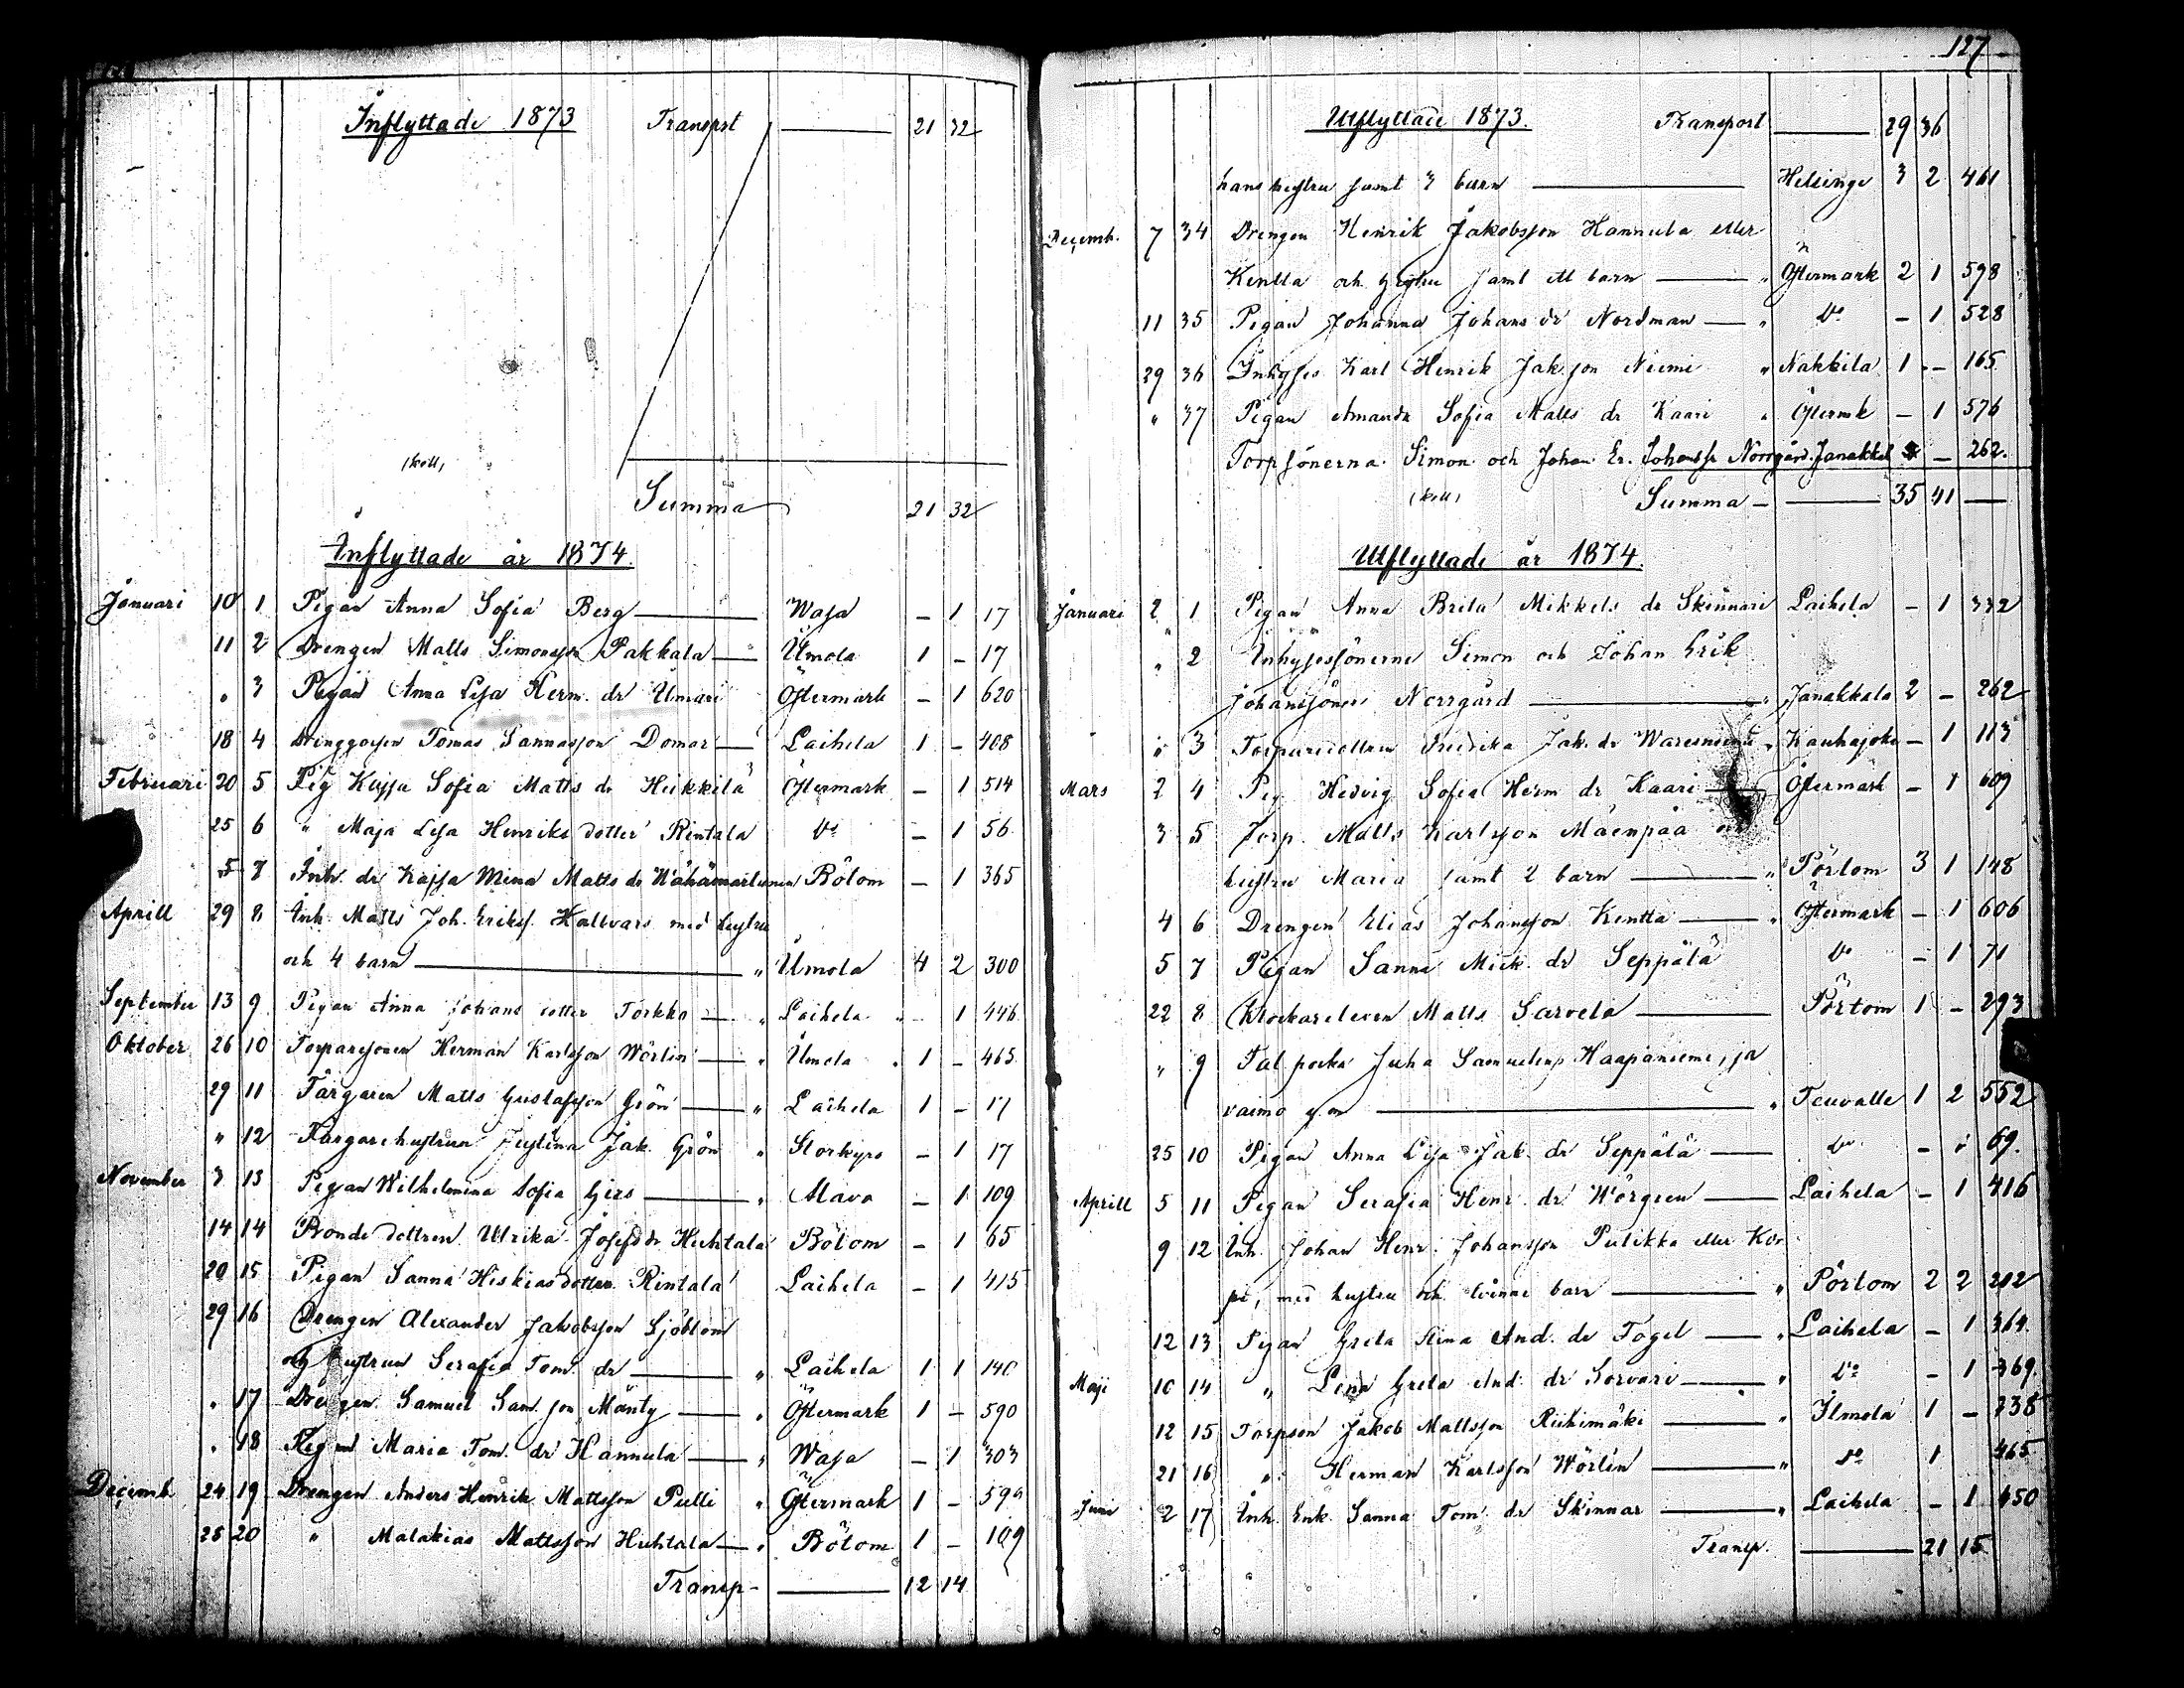 Inflyttade 1873 Transprt 21 32
(koll)
Summa 21 32
Inflyttade år 1874.
Januari 10 1 Pigan Anna Sofia Berg Wasa – 1 17
11 2 Drengen Matts Simonsson Pakkala Ilmola 1 – 17
" 3 Pigan Anna Lisa Herm. dr Östermark – 1 620
18 4 Tomas Sannasson Domar Laihela 1 – 408
Februari 20 5 Pig Kajsa Sofia Matts dr Heikkilä Östermark – 1 514
25 6 " Maja Lisa Henriks dotter Rintala Do – 1 56
5 7 Inh. dr Kajsa Mina Matts dr Bötom – 1 365
Aprill 29 8 Inh. Matts Joh. Erikss. Hallvars med hustru
och 4 barn " Ilmola 4 2 300
September 13 9 Pigan Anna Johans dotter Torkko " Laihela 1 446
Oktober 26 10 Torparesonen Herman Karlsson Wörlin " Ilmola 1 – 465
29 11 Färgaren Matts Gustafsson Grön " Laihela 1 – 17
" 12 Färgarehustrun Justina Jak. Grön " Storkyro – 1 17
November 3 13 Pigan Wilhelmina Sofia Gers " Alavo – 1 109
14 14 Bonde dottren Ulrika Josefs dr Huhtala Bötom – 1 65
20 15 Pigan Sanna Hiskias dotter Rintala Laihela – 1 415
29 16 Drengen Alexander Jakobsson Sjöblom
och hustrun Serafia Tom. dr " Laihela 1 1 140
" 17 Drengen Samuel Sam. son Mänty " Östermark 1 – 590
" 18 Pigan Maria Tom. dr Hannula " Wasa – 1 303
Decemb. 24 19 Drengen Anders Henrik Mattsson Pulli " Östermark 1 –
25 20 " Malakias Mattsson Huhtala " Bötom 1 – 109
Transp – 12 14
127
Utflyttade 1873. Transport 29 36
hans hustru samt 3 barn Helsinge 3 2 461
Decemb. 7 34 Drengen Henrik Jakobsson Hannula eller
Kentta och hustru samt ett barn " Östermark 2 1 598
11 35 Pigan Johanna Johans dr Nordman " Do – 1 528
29 36 Inhyses Karl Henrik Jak.son Niemi " Nakkila 1 – 165
" 37 Pigan Amanda Sofia Matts dr Kaari " Östermk – 1 576
Torpsönerna Simon och Johan Er. Johanss. Norrgård. Janakkal – 262.
(koll) Summa – 35 41 —
Utflyttade år 1874.
Januari 2 1 Pigan Anna Brita Mikkels dr Skinnari Laihela – 1 332
" 2 Inhysessönerne Simon och Johan Erik
Johanssöner Norrgård " Janakkala 2 – 262
" 3 Fredrika Jak. dr " Kauhajoki – 1 113
Mars 2 4 Pig. Hedvig Sofia Herm dr Kaari Östermark – 1 609
3 5 Torp. Matts Karlsson Mäenpää och
hustru Maria samt 2 barn " Pörtom 3 1 148
4 6 Drengen Elias Johansson Kentta " Östermark – 1 606
5 7 Pigan Sanna Mick. dr Seppälä Do – 1 71
22 8 Klockareleven Matts Sarvela Pörtom 1 – 293
" 9 Tal. poika Juha Samuelinp. Haapaniemi, ja
vaimo y.m " Teuvalle 1 2 552
25 10 Pigan Anna Lisa Jak. dr Seppälä Do – 1 69.
Aprill 5 11 Pigan Serafia Henr. dr Wörgren Laihela – 1 416
9 12 Inh. Johan Henr. Johansson Pulikka eller Kor
pi, med hustru och tvänne barn " Pörtom 2 2 212
12 13 Pigan Greta Stina And. dr Fogel " Laihela – 1 364
Maji 10 14 " Lena Greta And. dr Sorvari " Do – 1 369.
12 15 Torpson Jakob Mattsson Riihimäki " Ilmola 1 – 238
21 16 " Herman Karlsson Wörlin " Do 1 465
Juni 2 17 Inh. Enk. Sanna Tom. dr Skinnar " Laihela – 1 450
Transp. 21 15